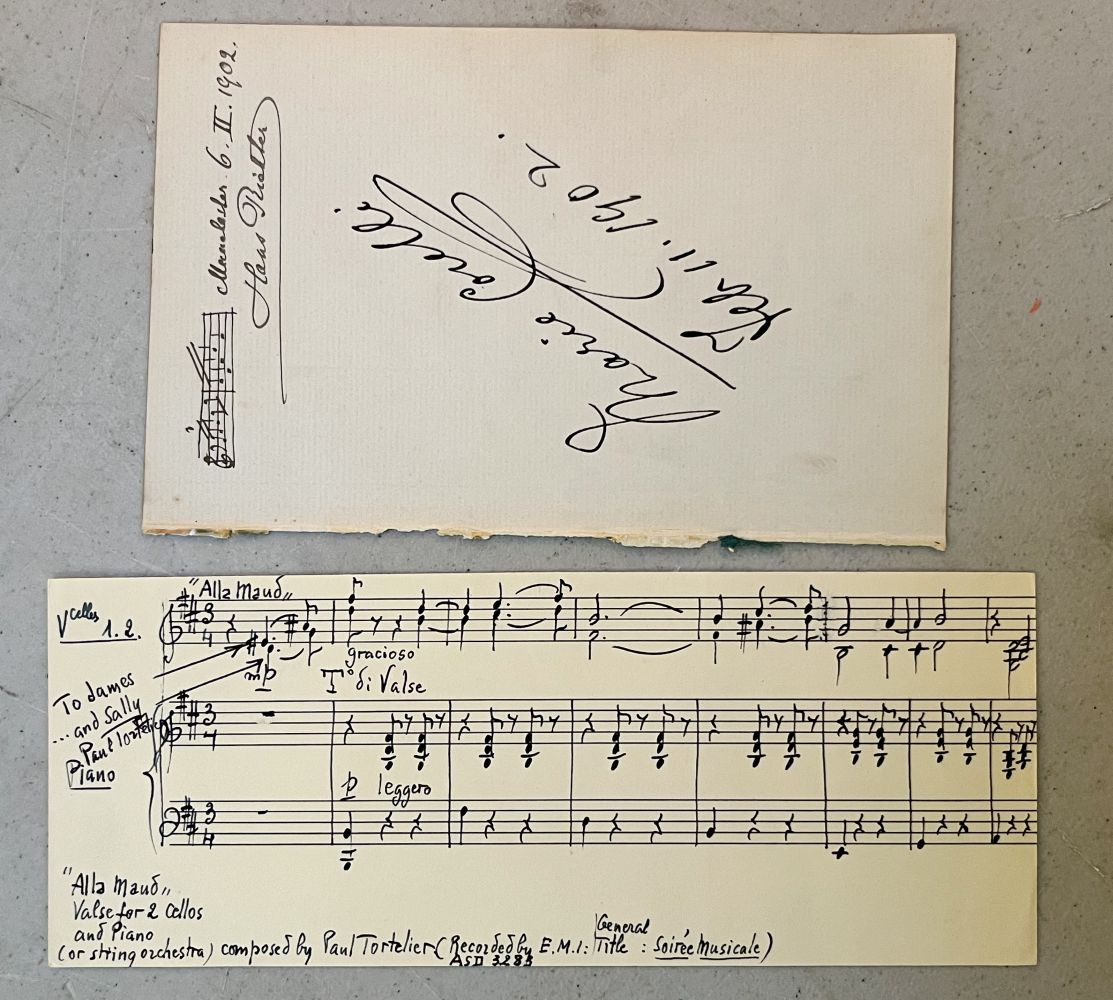 Manchester 6. II. 1902.
Hans Richter
Marie Corelli.
Feb 11. 1902.
"Alla Maud"
Vcellos 1. 2.
3
4
mp
gracioso
To di Valse
To dames
... and Sally
Paul Tortelier
Piano
3
4
p leggero
3
4
"Alla Maud"
Valse for 2 Cellos
and Piano
(or string orchestra) composed by Paul Tortelier (Recorded by E.M.I: General Title : Soirée Musicale)
ASD 3283